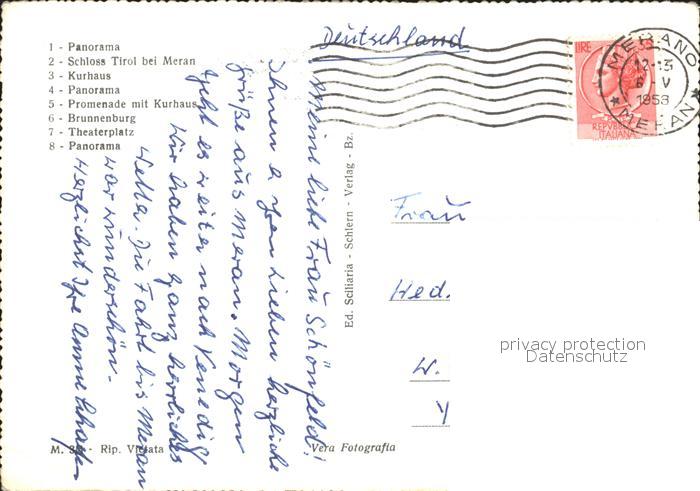 1 - Panorama
2 - Schloss Tirol bei Meran
3 - Kurhaus
4 - Panorama
5 - Promenade mit Kurhaus
6 - Brunnenburg
7 - Theaterplatz
8 - Panorama
Deutschland
LIRE
REPUBBLICA
ITALIANA
MERANO
12-13
6 V
1958
MERAN
Meine liebe Frau Schönfeld!
Ihnen u. Ihren Lieben herzliche
Grüße aus Meran. Morgen
geht es weiter nach Venedig
Wir haben ganz herrliches
Wetter. Die Fahrt bis Meran
war wunderschön.
Herzlichst Ihre Anne
Ed. Sciliaria - Schlern - Verlag - Bz.
Frau
Hed.
W.
privacy protection
Datenschutz
M. - Rip. Vietata
Vera Fotografia